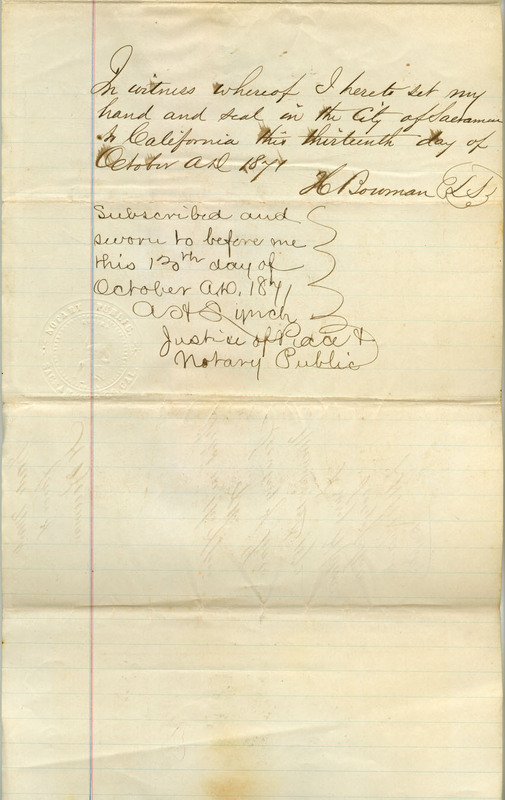 In witness whereof I hereto set my
hand and seal in the City of Sacramen
to California this thirteenth day of
October A.D. 1871
H Bowman L.S.
Subscribed and
sworn to before me
this 13th day of
October A.D. 1871
A Lynch
Justice of Peace &
Notary Public
NOTARY PUBLIC